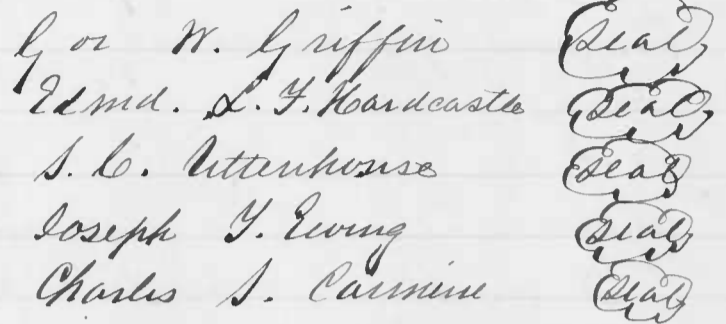 Geo W. Griffin Seal
Edmd. L. F. Hardcastle Seal
S. C. Uttenhouse Seal
Joseph Y. Ewing Seal
Charles S. Carmine Seal